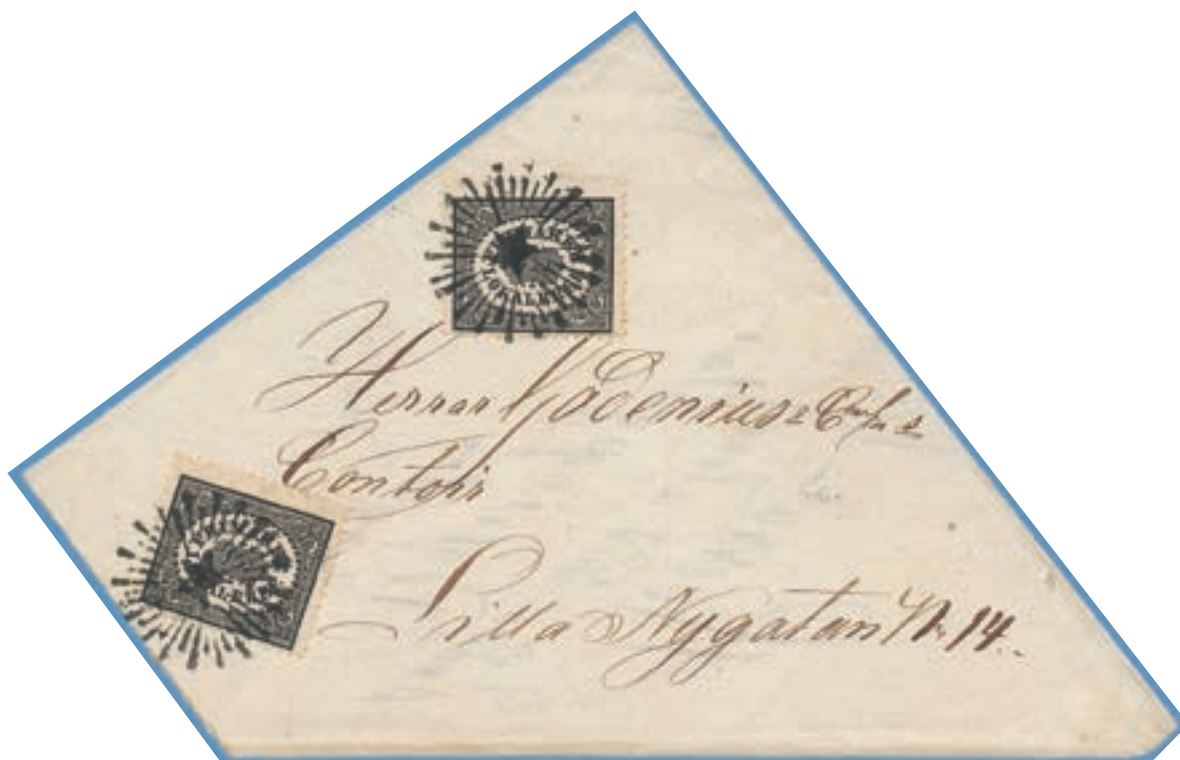 LOKALBREF
Herrar Godenius & Comp:s
Contoir
Lilla Nygatan No 14.